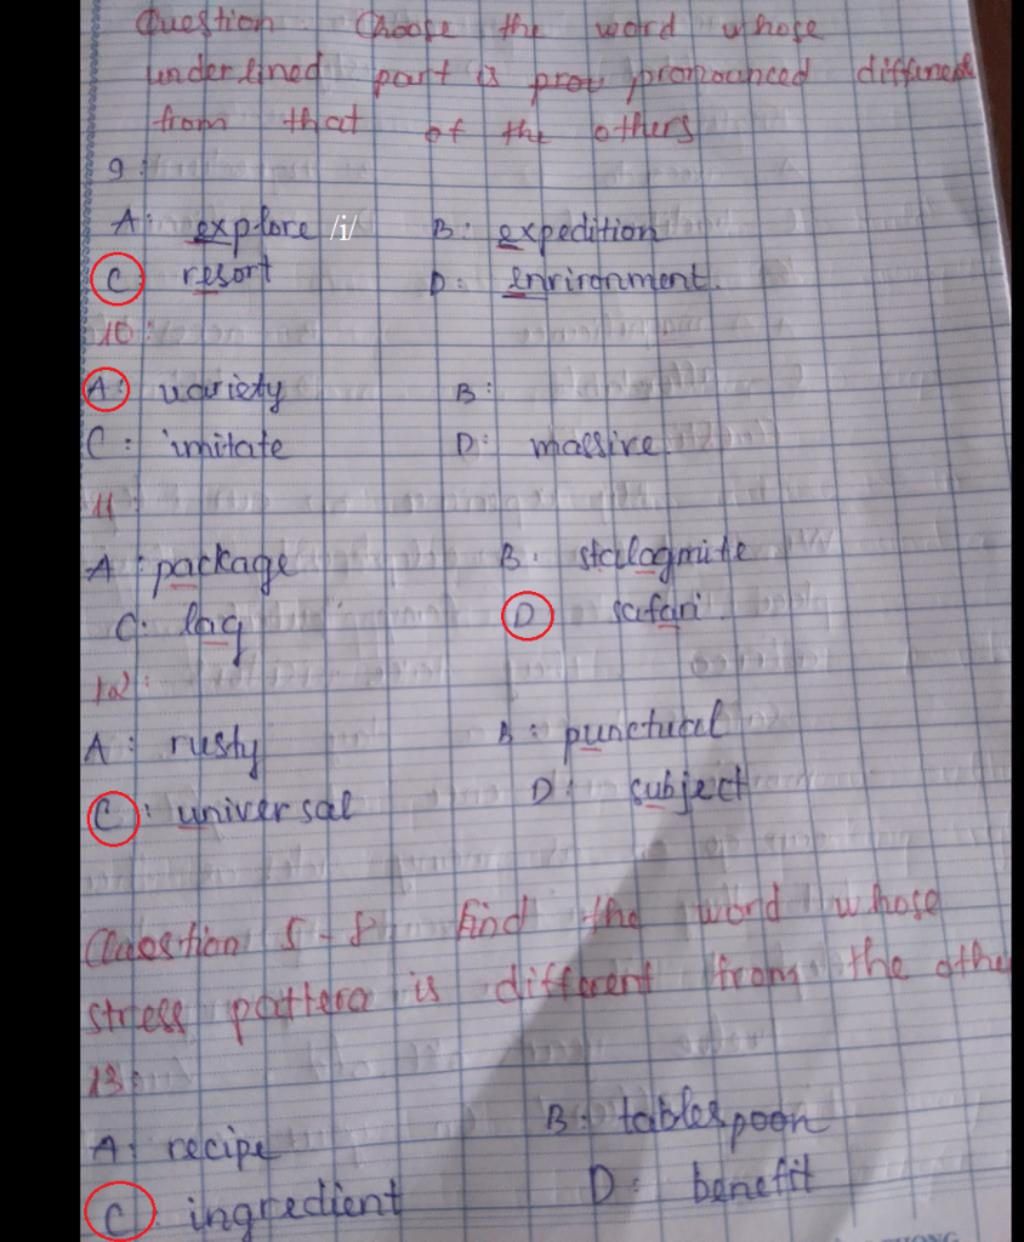 Question Choose the word whose
underlined part is prou pronounced different
from that of the others
9:
A: explore /i/ B: expedition
C resort D: environment.
10:
A: variety B:
C: imitate D: massive.
11
A: package B. stalagmite
C. lag D safari.
12:
A: rusty B: punctual
C: universal D: subject
Question 5-8 find the word whose
stress pattern is different from the othe
13:
A: recipe B: tablespoon
C ingredient D: benefit